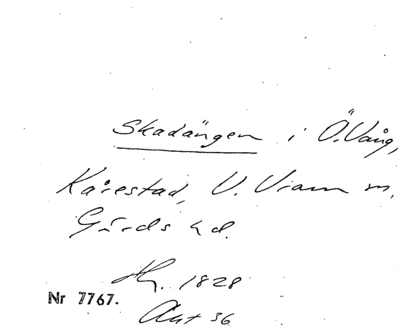 Skadängen i Ö. Vång,
Kårestad, V. Vram m,
Gärds hd.
Hy. 1828
Nr 7767.
Akt 36